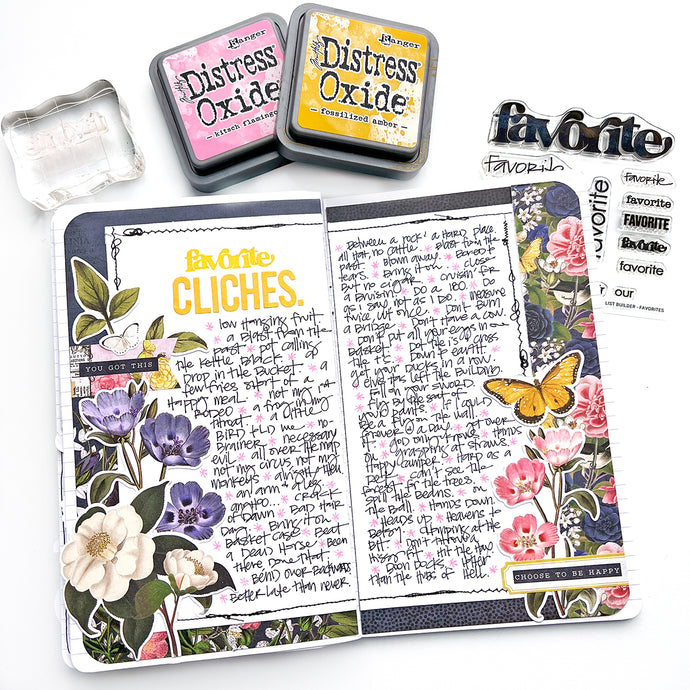 Ranger
Tim Holtz
Distress
Oxide
– kitsch flamingo –
Ranger
Tim Holtz
Distress
Oxide
– fossilized amber –
favorite
favorite
favorite
favorite
favorite
FAVORITE
favorite
favorite
our
LIST BUILDER - FAVORITES
favorite
CLICHES.
YOU GOT THIS
low hanging fruit
* a Blast from the
past * pot calling
the kettle black. * a
Drop in the Bucket. * a
few fries short of a
Happy meal. * not my 1st
Rodeo * a frog in my
throat * a little
BIRD told me * no-
Brainer * necessary
evil * all over the map
not my circus, not my
monkeys * alrighty then
* an arm & a leg
* crack
of Dawn * Bad Hair
Day * Bring it on *
Basket case * Beat
a Dead Horse * Been
there Done that. *
Bend over Backwards
Better late than never
Between a rock & a Hard place.
all hat, no cattle. * Blast from the
past. * Blown away. * Bored to
tears. * Bring it on * close
But no cigar * cruisin' for
a Bruisin' * Do a 180. * Do
as I say not as I do. * measure
twice, cut once * Don't Burn
a Bridge * Don't Have a cow.
Don't put all your eggs in 1
Basket. *
* Down to earth. *
get your Ducks in a row. *
elvis has left the Building.
* Fall on your sword. *
* By the seat of
your pants. * If I could
Be a fly on the wall. *
* get over it
* God only knows * Hands
* grasping at straws. *
Happy camper. * Harp as a
* can't see the
forest for the trees. *
spill the Beans. * on
the Ball. * Hands Down
* Heads up * Heavens to
Betsy. * chomping at the
Bit. *
Hissy fit * Hit the Hay
* Boon Docks. * Hotter
than the Hubs of Hell. *
CHOOSE TO BE HAPPY